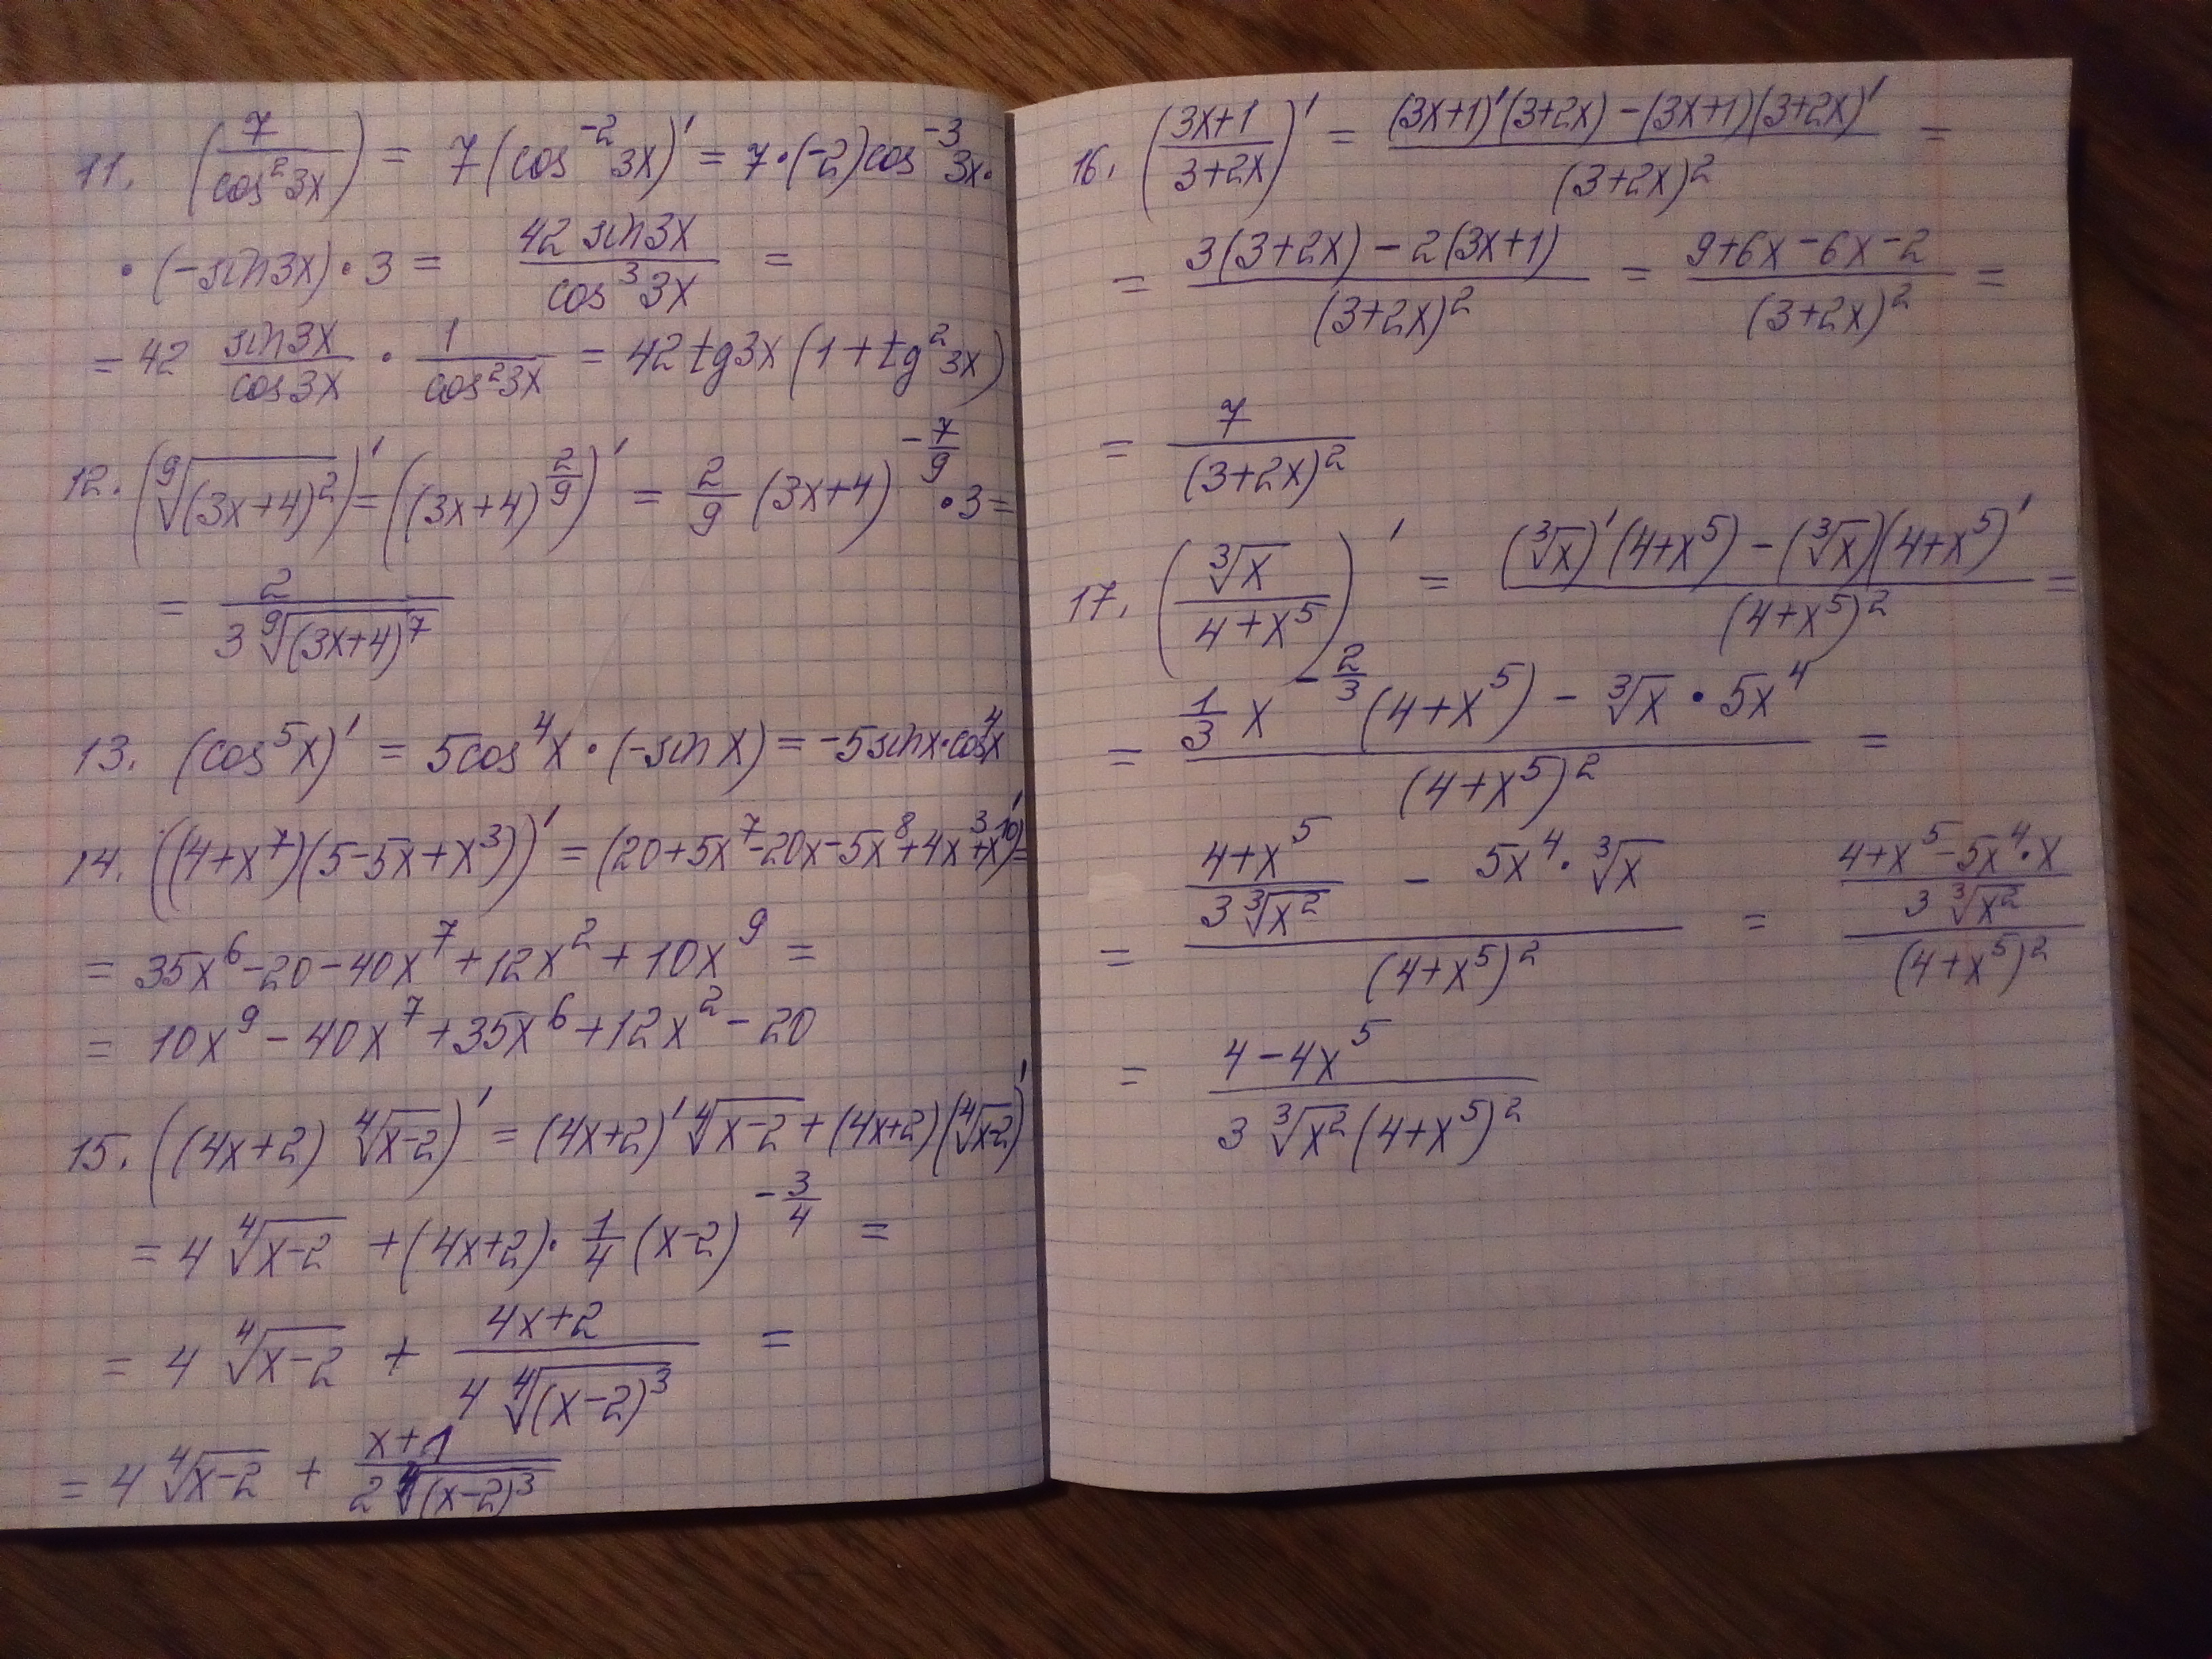 11. (7/cos²3x) = 7(cos⁻²3x)′ = 7·(-2)cos⁻³3x·
·(-sin3x)·3 = 42 sin3x/cos³3x =
= 42 sin3x/cos3x · 1/cos²3x = 42tg3x(1+tg²3x)
12. (⁹√((3x+4)²))′ = ((3x+4)^(2/9))′ = 2/9 (3x+4)^(-7/9) ·3 =
= 2/(3 ⁹√((3x+4)⁷))
13. (cos⁵x)′ = 5cos⁴x·(-sinx) = -5sinx·cos⁴x
14. ((4+x⁷)(5-5x+x³))′ = (20+5x⁷-20x-5x⁸+4x³+x¹⁰)′=
= 35x⁶-20-40x⁷+12x²+10x⁹ =
= 10x⁹-40x⁷+35x⁶+12x²-20
15. ((4x+2) ⁴√(x-2))′ = (4x+2)′ ⁴√(x-2) + (4x+2)(⁴√(x-2))′
= 4 ⁴√(x-2) + (4x+2)· 1/4 (x-2)^(-3/4) =
= 4 ⁴√(x-2) + (4x+2)/(4 ⁴√((x-2)³)) =
= 4 ⁴√(x-2) + (x+1)/(2 ⁴√((x-2)³))
16. ((3x+1)/(3+2x))′ = ((3x+1)′(3+2x)-(3x+1)(3+2x)′)/(3+2x)² =
= (3(3+2x)-2(3x+1))/(3+2x)² = (9+6x-6x-2)/(3+2x)² =
= 7/(3+2x)²
17. (³√x/(4+x⁵))′ = ((³√x)′(4+x⁵)-(³√x)(4+x⁵)′)/(4+x⁵)² =
= (1/3 x^(-2/3) (4+x⁵) - ³√x · 5x⁴)/(4+x⁵)² =
= ((4+x⁵)/(3 ³√x²) - 5x⁴·³√x)/(4+x⁵)² = ((4+x⁵-5x⁴·x)/(3 ³√x²))/(4+x⁵)²
= (4-4x⁵)/(3 ³√x² (4+x⁵)²)